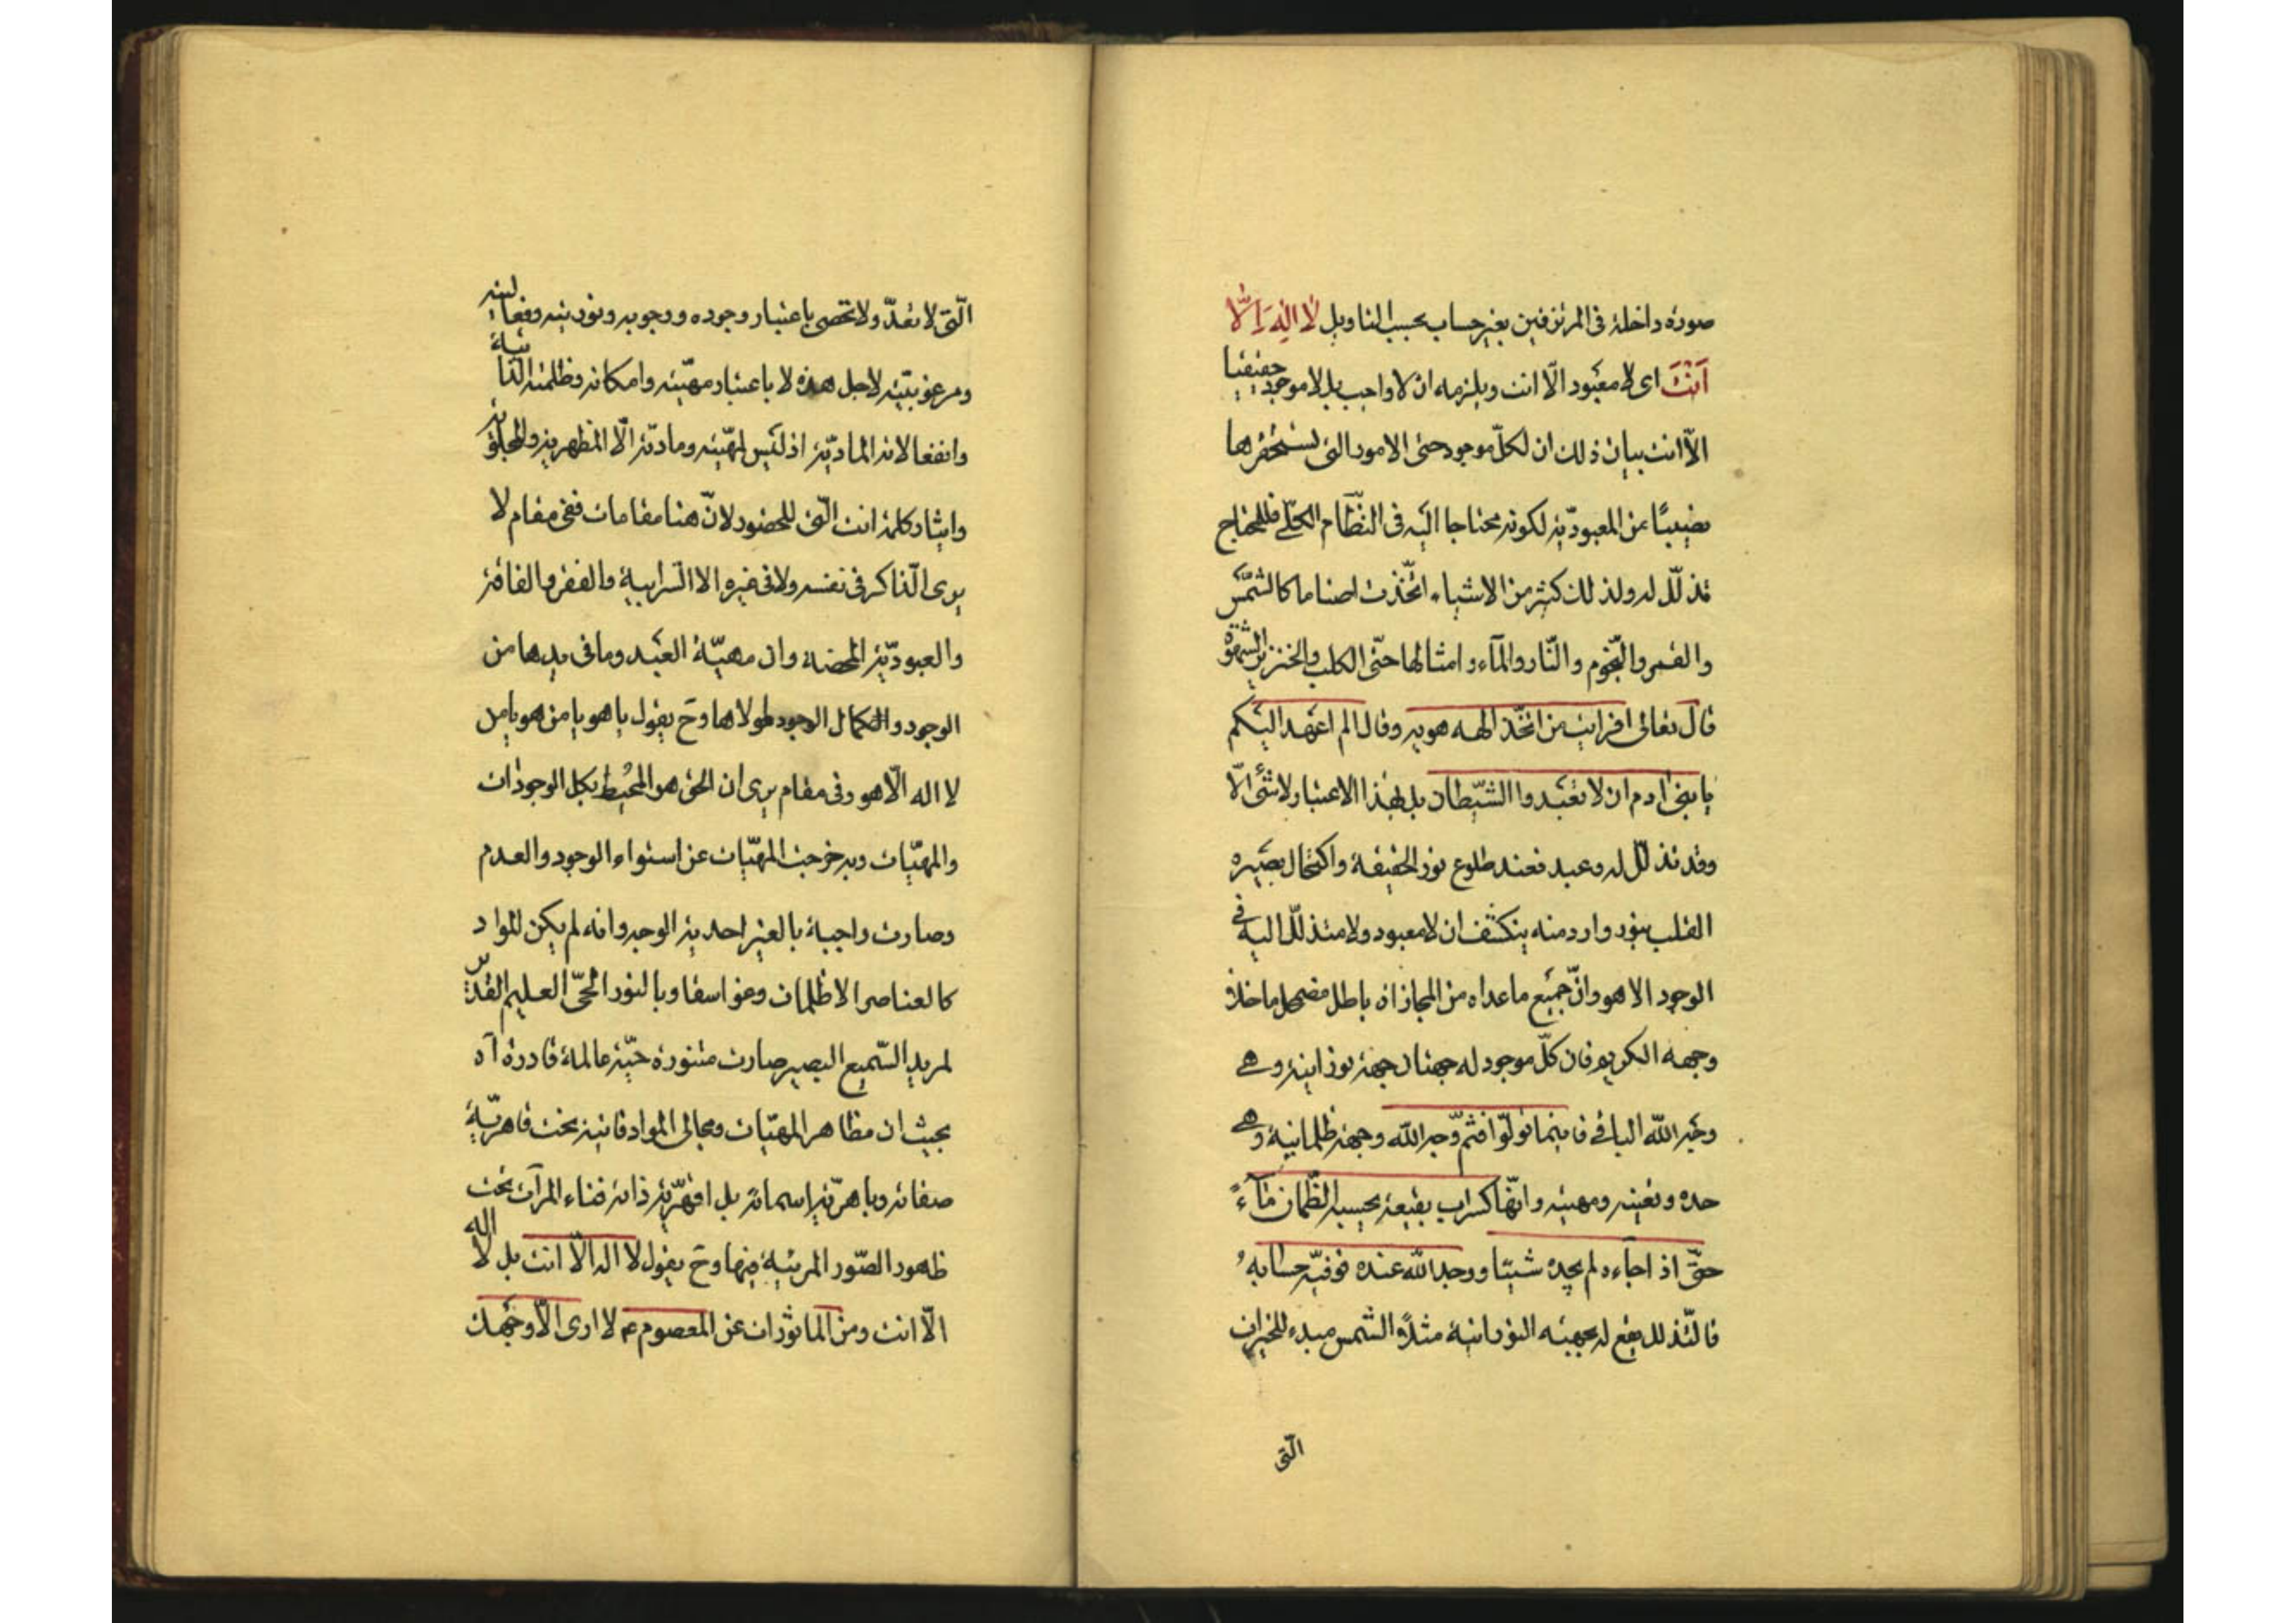 صورة داخلة فى المرتزقين بغير حساب بحسب التاويل لا اله الا
انت اى لا معبود الّا انت ويلزمه ان لا واجب بل لا موجود حقيقيا
الّا انت بيان ذلك ان لكلّ موجود حتى الامور التى تستحقرها
نصيبًا من المعبوديّة لكونه محتاجا اليه فى النظام الكلّى فللمحتاج
تذلّل له ولذلك كثير من الاشياء اتّخذت اصناما كالشمس
والقمر والنّجوم والنّار والمآء وامثالها حتّى الكلب والخنزير والشهوة
قال تعالى افرايت من اتّخذ الهه هويه وقال الم اعهد اليكم
يا بنى ادم ان لا تعبدوا الشيطان بل بهذا الاعتبار لا شئ الّا
وقد تذلّل له وعبد فعند طلوع نور الحقيقة واكتحال بصيره
القلب بنور وارد منه ينكشف ان لا معبود ولا متذلّل اليه فى
الوجود الا هو وانّ جميع ما عداه من المجازات باطل مضمحل ما خلا
وجهه الكريم فان كلّ موجود له جهتان جهة نورانية وهى
وجه الله الباقى فاينما تولّوا فثمّ وجه الله وجهة ظلمانية وهى
حده وتعينه ومهيته وانّها كسراب بقيعة يحسبه الظّمان مآءً
حتّى اذا جآءه لم يجده شيئا ووجد الله عنده فوفّيه حسابه
فالتّذلل يقع له بجهته النورانية مثلًا الشمس مبدء للخيرات
الّتى
الّتى لا تعدّ ولا تحصى باعتبار وجوده ووجوبه ونوريته وفعاليته
ومرغوبيّته لاجل هذه لا باعتبار مهيّته وامكانه وظلمته الذاتية
وانفعالاته المادّية اذ ليس لمهيّته ومادّته الّا المظهرية والمجلوية
وايثار كلمة انت الّتى للحضور لانّ هنا مقامات ففى مقام لا
يرى الذّاكر فى نفسه ولا فى غيره الا السرابية والفقر والفاقة
والعبوديّة المحضة وان مهيّة العبد وما فى يدها من
الوجود والكمال الوجود لمولاها وح يقول يا هو يا من هو يا من
لا اله الّا هو وفى مقام يرى ان الحق هو المحيط بكل الوجودات
والمهيّات وبه خرجت المهيّات عن استواء الوجود والعدم
وصارت واجبة بالغير احدية الوجه وانه لم يكن للمواد
كالعناصر الا ظلمات وغواسقا وبالنور الحىّ العليم القدير
لمريد السّميع البصير صارت متنورة حيّة عالمة قادرة آه
بحيث ان مظاهر المهيّات ومجالى المواد فانية تحت قاهريّة
صفاته وباهريّة اسمائه بل اقهرّية ذاته فناء المرآت تحت
ظهور الصّور المرئية فيها وح يقول لا اله الّا انت بل لا اله
الّا انت ومن الماثورات عن المعصوم ع لا ارى الّا وجهك